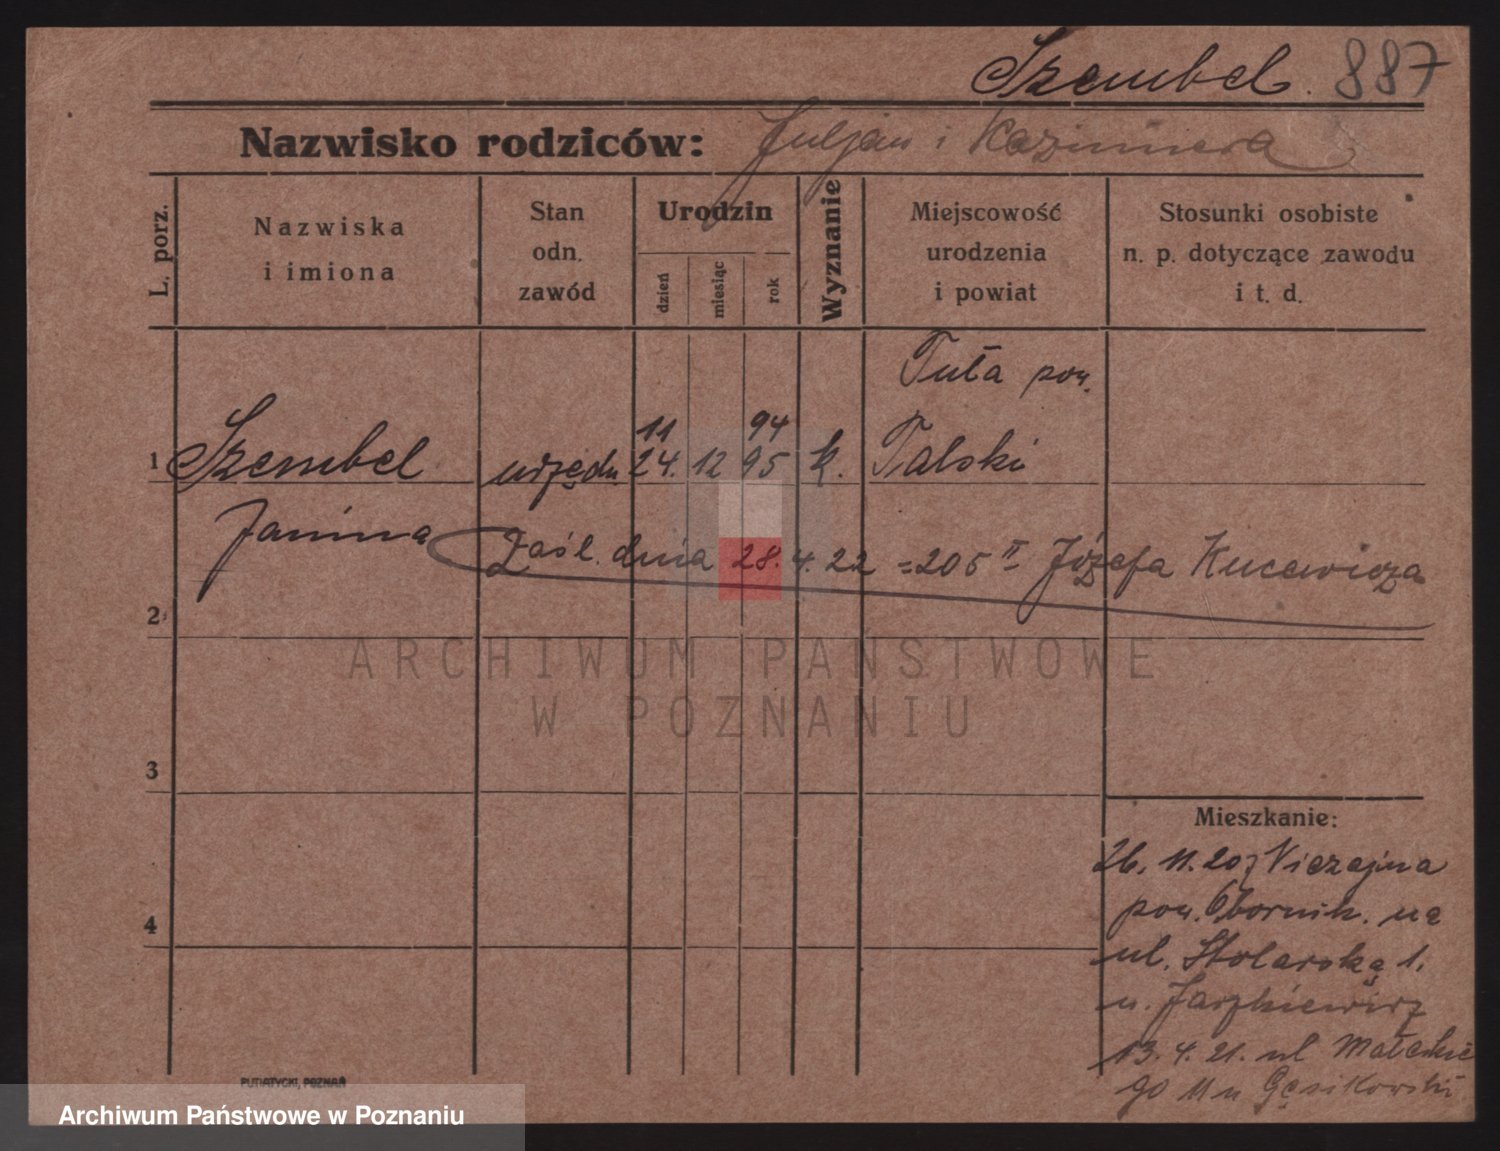 Szembel. 887
Nazwisko rodziców: Juljan i Kazimiera
L. porz.
Nazwiska
i imiona
Stan
odn.
zawód
Urodzin
dzień
miesiąc
rok
Wyznanie
Miejscowość
urodzenia
i powiat
Stosunki osobiste
n. p. dotyczące zawodu
i t. d.
Tuła pow.
11 94
1 Szembel urzędn. 24. 12 95 k. Talski
Janina Zaśl. dnia 28. 4. 22 = 205 II Józefa Kucewicza
2
ARCHIWUM PAŃSTWOWE
W POZNANIU
3
Mieszkanie:
26. 11. 20 z
pow. Obornik. na
4
ul. Stolarską 1.
u. Jaszkiewicz
13. 4. 21. ul Małeckie
go 11 u Gąsikowski
PUTIATYCKI, POZNAŃ
Archiwum Państwowe w Poznaniu